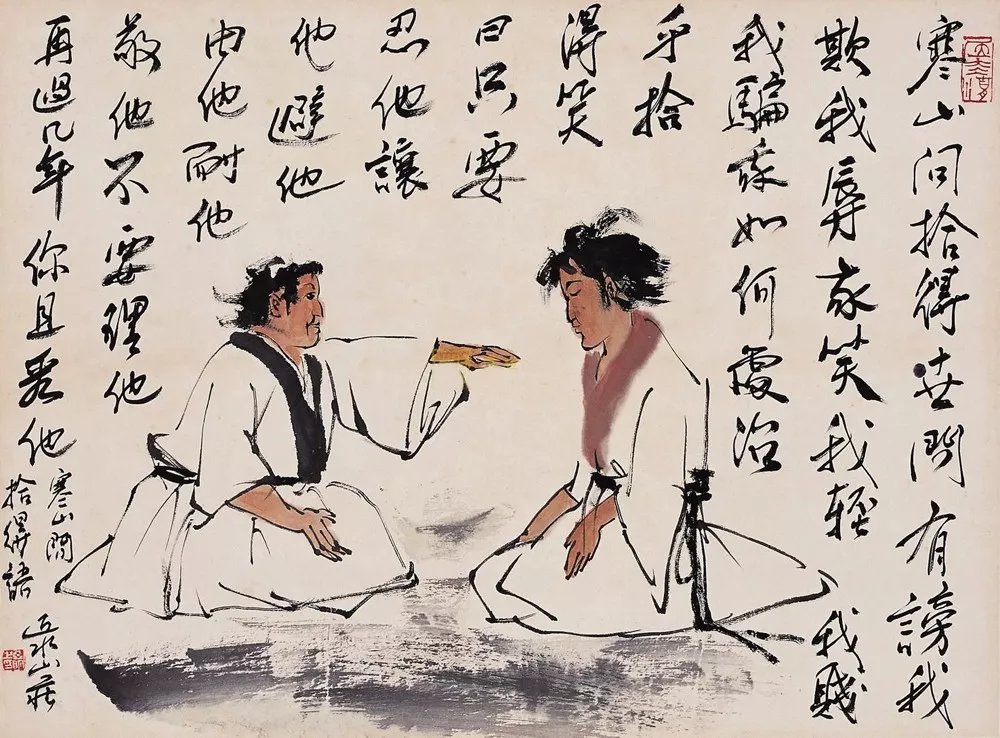 寒山问拾得世間有謗我
欺我辱我笑我輕我賤
我騙我如何處治
乎拾
得笑
曰只要
忍他讓
他避他
由他耐他
敬他不要理他
再過几年你且看他
寒山問
拾得語
山莊